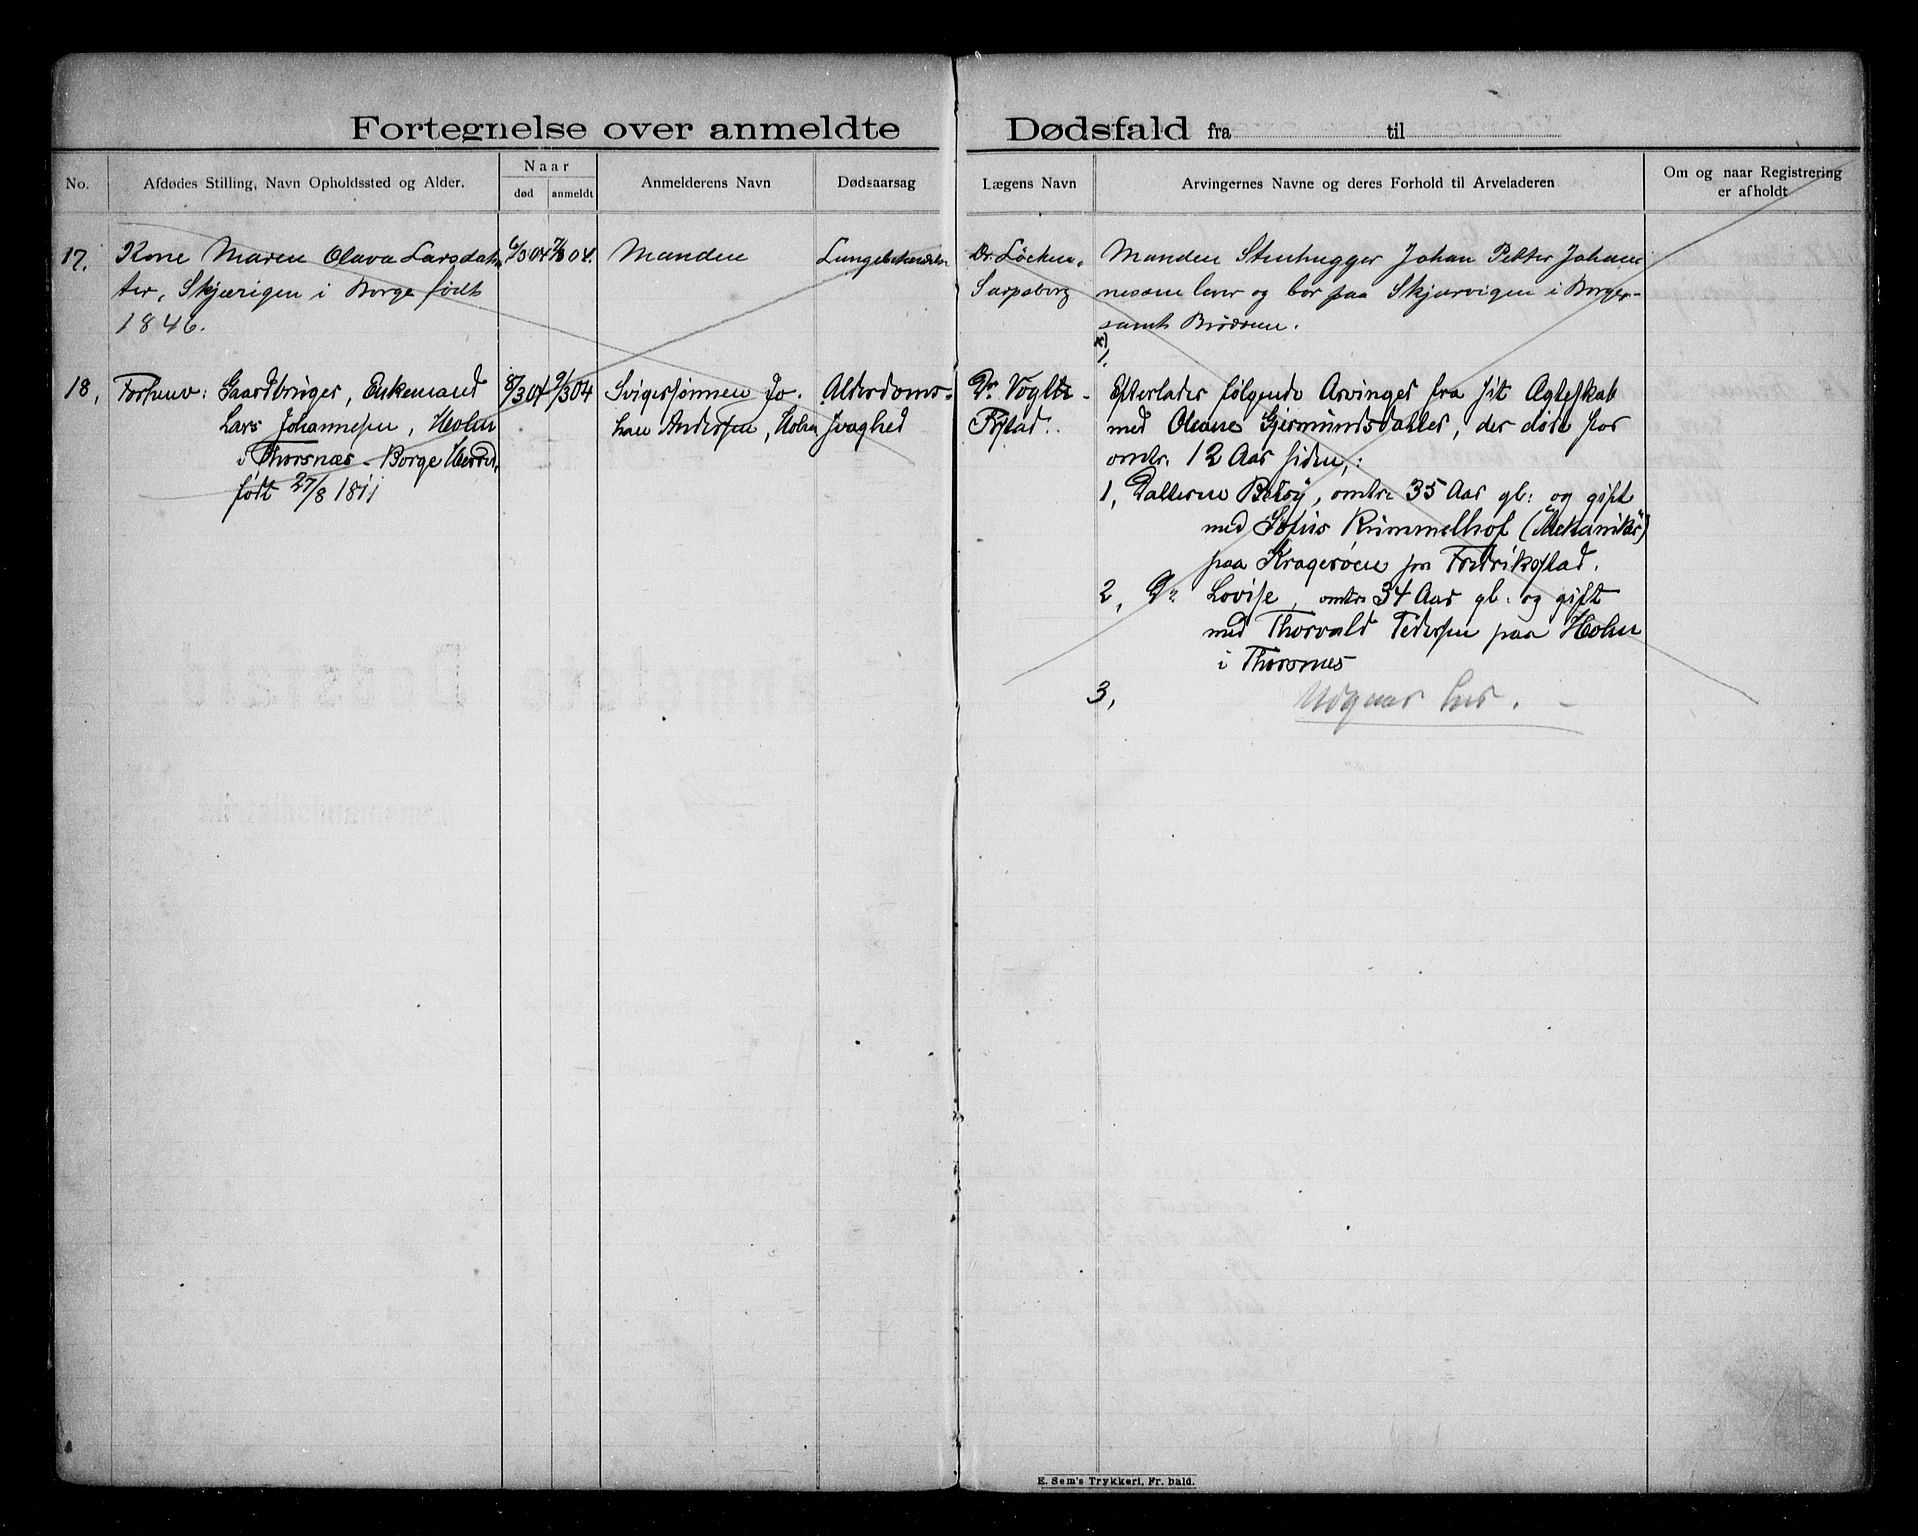 Fortegnelse over anmeldte Dødsfald fra til
No.
Afdødes Stilling, Navn Opholdssted og Alder.
Naar
død
anmeldt
Anmelderens Navn
Dødsaarsag
Lægens Navn
Arvingernes Navne og deres Forhold til Arveladeren
Om og naar Registrering
er afholdt
17.
Kone Maren Olava Larsdat-
ter, Skjærigen i Borge født
1846.
6/3 04
7/3 04.
Manden
Lungebetændelse
Dr. Løchen,
Sarpsborg
Manden Stenhugger Johan Petter Johan-
nesen lever og bor paa Skjærvigen i Borge-
samt Brødrene.
x)
1,
18,
Forhenv: Gaardbruger, Enkemand
Lars Johannesen, Holm
i Thorsnæs - Borge Herred,
født 27/8 1811
8/3 04
9/3 04
Svigersønnen Jo-
han Andersen, Holm
Alderdoms-
svaghed
Dr. Vogt
Fr.stad.
Efterlader følgende Arvinger fra sit Ægteskab
med Oleane Gjermundsdatter, der døde for
omtr. 12 Aar siden,:
1, Datteren Betsy, omtr. 35 Aar gl: og gift
med Sofus Rummelhof (Mekaniker)
paa Kragerøen pr Fredrikstad.
2, Do Lovise, omtr. 34 Aar gl: og gift
med Thorvald Pedersen paa Holm
i Thorsnes
3,
Udgaar her.
E. Sem's Trykkeri, Fr. hald.